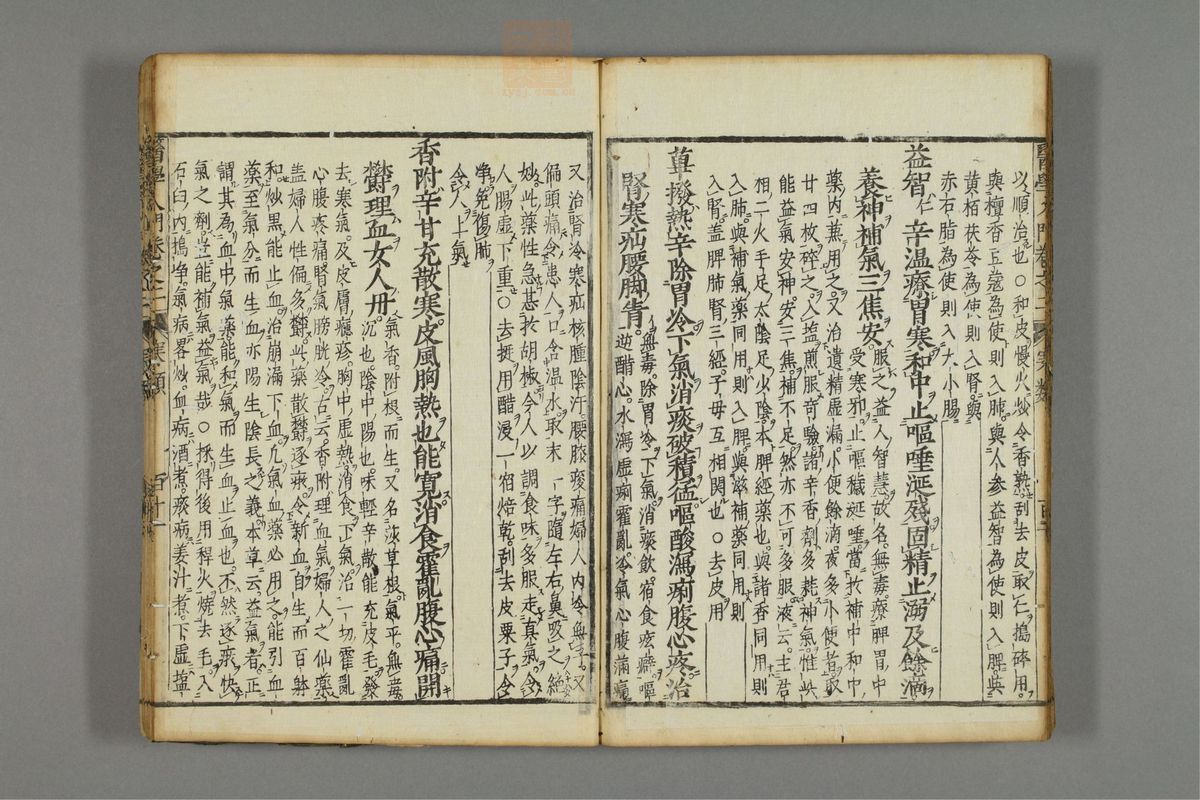 以順治也○和皮慢火炒令香熟刮去皮取仁搗碎用。
與檀香豆蔲為使則入肺與人參益智為使則入脾與
黄栢茯苓為使則入腎與
赤石脂為使則入大小腸
益智仁辛温療胃寒和中止嘔唾涎殘固精止溺及餘滴
養神補氣三焦安。服之益人智慧。故名。無毒。療脾胃中
受寒邪。止嘔穢涎唾。當於補中和中
藥内兼用之。又治遺精虚漏。小便餘滴。夜多小便者。取
廿四枚碎之。入塩煎服奇驗。諸辛香劑多耗神氣。惟此
能益氣安神。安三焦。補不足。然亦不可多服。液云。主君
相二火手足太陰足少陰。本脾經藥也。與諸香同用則
入肺。與補氣藥同用則入脾。與滋補藥同用則
入腎。盖脾肺腎三經。子母互相関也○去皮用
蓽撥熱辛除胃冷下氣消痰破積猛嘔酸瀉痢腹心疼治
腎寒疝腰脚肯。無毒。除胃冷下氣。消痰飲宿食痃癖。嘔
逆醋心。水瀉虚痢霍亂。冷氣心腹滿痛
又治腎冷寒疝核腫陰汗。腰胶痠痛婦人内冷無子。又
偏頭痛令患人口含温水。取末一字隨左右鼻吸之絶
妙。此藥性急甚於胡椒。今人以調食味多服走真氣。令
人腸虚下重○去挺用醋浸一宿焙乾。刮去皮粟子令
净。免傷肺
令人上氣
香附辛甘充散寒。皮風胸熱也能寛消食霍亂腹心痛開
欝理血女人丹。氣香。附根而生。又名莎草根。氣平。無毒
沉也。陰中陽也。味輕辛散能充皮毛。發
去寒氣。及皮膚癮疹胸中虚熱。消食下氣。治一切霍亂
心腹疼痛腎氣膀胱冷。古云。香附理血氣婦人之仙藥
盖婦人性偏多欝。此藥散欝逐瘀。令新血自生而百躰
和。炒黑能止血。治崩漏下血。凡氣血藥必用之。能引血
藥至氣分而生血。亦陽生陰長之義。本草云。益氣者。正
謂其為血中氣藥能和氣而生血止血也。不然逐瘀快
氣之劑。豈能補氣益氣哉○採得後用稈火燒去毛。入
石臼内搗净。氣病畧炒。血病酒煮。痰病姜汁煮。下虚塩